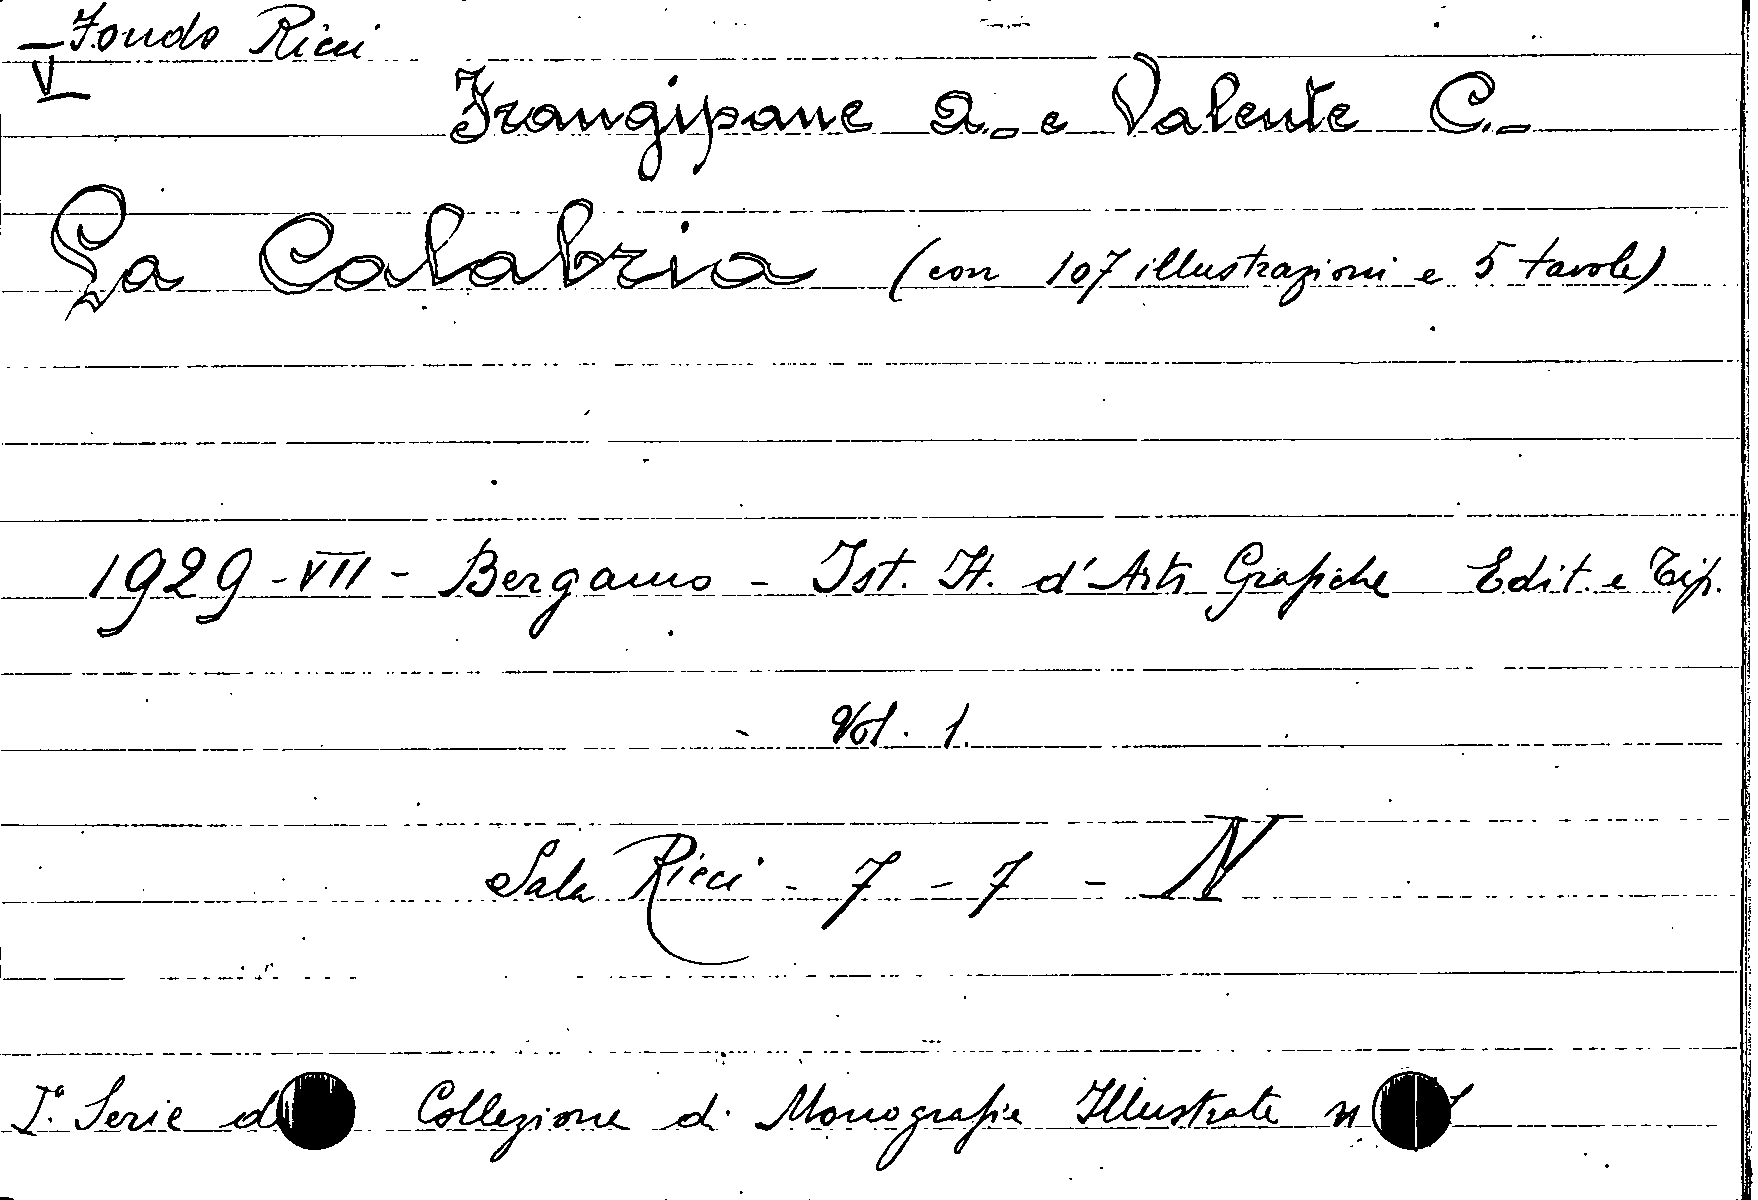 Fondo Ricci
V
Frangipane A. e Valente C.
La Calabria (con 107 illustrazioni e 5 tavole)
1929 - VII - Bergamo - Ist. It. d'Arti Grafiche Edit. e Tip.
Vol. 1.
Sala Ricci - 7 - 7 - N
Iª Serie Collezione di Monografie Illustrate n